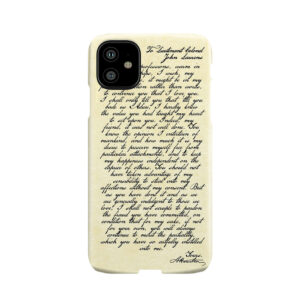 To Lieutenant Colonel
John Laurens
professions, warm in
I wish, my
it might be in my
rather than words,
to convince you that I love you.
I shall only tell you that 'till you
bade us Adieu, I hardly knew
the value you had taught my heart
to set upon you. Indeed, my
friend, it was not well done. You
know the opinion I entertain of
mankind, and how much it is my
desire to preserve myself free from
particular attachments, and to keep
my happiness independent on the
caprice of others. You should not
have taken advantage of my
sensibility to steal into my
affections without my consent. But
as you have done it and as we
are generally indulgent to those we
love, I shall not scruple to pardon
the fraud you have committed, on
condition that for my sake, if not
for your own, you will always
continue to merit the partiality,
which you have so artfully instilled
into me.
Yours,